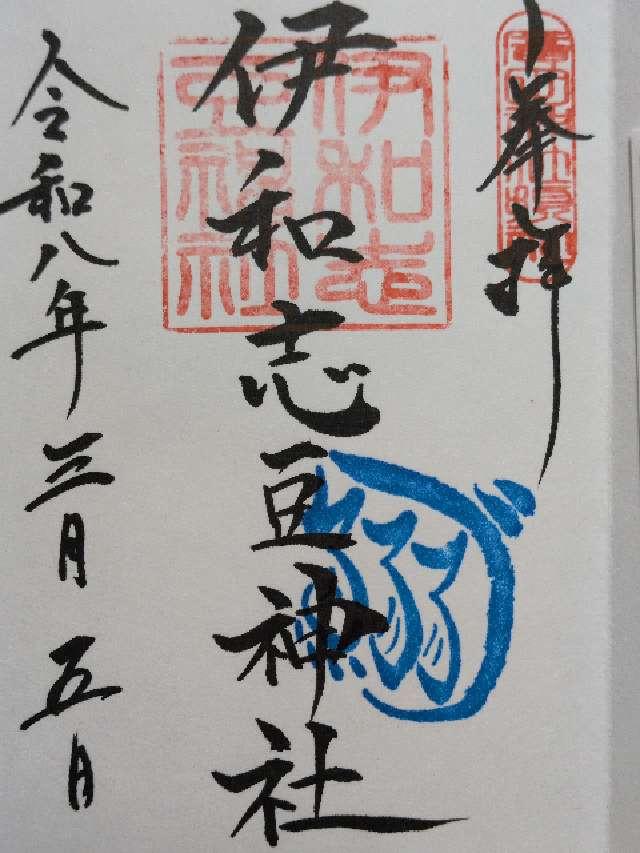 奉拝
伊和志豆神社
令和八年三月五日
伊和志
豆神社
鰯
づ